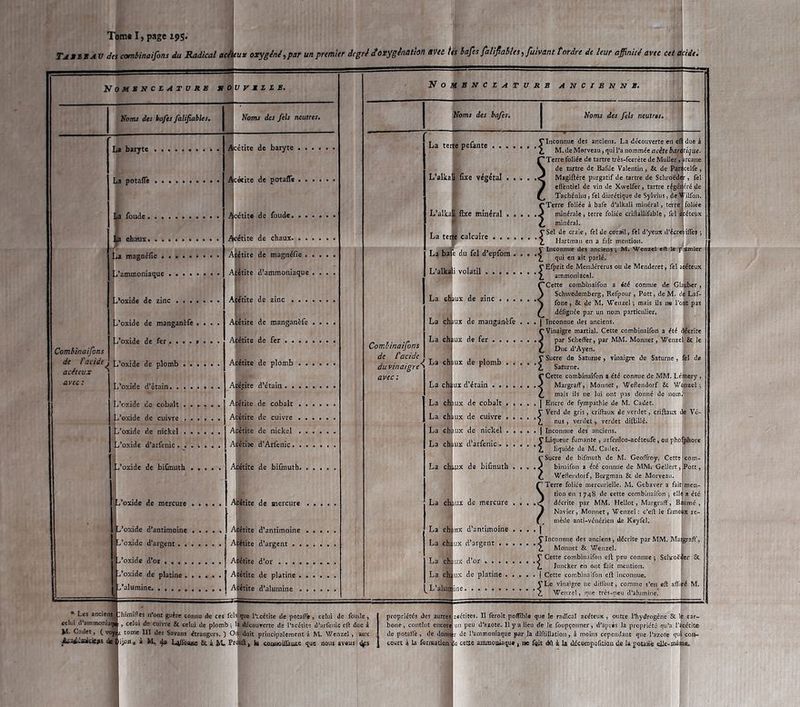 Tome I, page 295.
TABLEAU des combinaisons du Radical acéteux oxygéné, par un premier degré d'oxygénation avec les bases salifiables, suivant l'ordre de leur affinité avec cet acide.
NOMENCLATURE NOUVELLE.
Noms des bases salifiables.
Noms des sels neutres.
Combinaisons
de l'acide
acéteux
avec :
La baryte . . . . . . . . . Acétite de baryte . . . . . .
La potasse . . . . . . . . . Acétite de potasse . . . . . .
La soude. . . . . . . . . . Acétite de soude. . . . . . .
La chaux. . . . . . . . . . Acétite de chaux. . . . . . .
La magnésie . . . . . . . . Acétite de magnésie . . . . .
L'ammoniaque . . . . . . . Acétite d'ammoniaque . . . .
L'oxide de zinc . . . . . . . Acétite de zinc . . . . . . .
L'oxide de manganèse . . . . Acétite de manganèse . . . .
L'oxide de fer . . . . . . . . Acétite de fer . . . . . . . .
L'oxide de plomb . . . . . . Acétite de plomb . . . . . .
L'oxide d'étain. . . . . . . . Acétite d'étain. . . . . . . .
L'oxide de cobalt . . . . . . Acétite de cobalt . . . . . .
L'oxide de cuivre . . . . . . Acétite de cuivre . . . . . .
L'oxide de nickel . . . . . . Acétite de nickel . . . . . .
L'oxide d'arsenic. . . . . . . Acétite d'Arsenic. . . . . . .
L'oxide de bismuth . . . . . Acétite de bismuth. . . . . .
L'oxide de mercure . . . . . Acétite de mercure . . . . .
L'oxide d'antimoine . . . . . Acétite d'antimoine . . . . .
L'oxide d'argent . . . . . . . Acétite d'argent . . . . . . .
L'oxide d'or . . . . . . . . . Acétite d'or . . . . . . . . .
L'oxide de platine . . . . . . Acétite de platine . . . . . .
L'alumine. . . . . . . . . . Acétite d'alumine . . . . . .
NOMENCLATURE ANCIENNE.
Noms des bases.
Noms des sels neutres.
Combinaisons
de l'acide
du vinaigre
avec :
La terre pesante . . . . . . Inconnue des anciens. La découverte en est due à
M. de Morveau, qui l'a nommée acète barotique.
L'alkali fixe végétal . . . . . Terre foliée de tartre très-secrète de Muller, arcane
de tartre de Basile Valentin, & de Paracelse,
Magistère purgatif de tartre de Schroëder, sel
essentiel de vin de Xwelfer, tartre régénéré de
Tachénius, sel diurétique de Sylvius, de Wilson.
L'alkali fixe minéral . . . . Terre foliée à base d'alkali minéral, terre foliée
minérale, terre foliée cristallisable, sel acéteux
minéral.
La terre calcaire . . . . . . Sel de craie, sel de corail, sel d'yeux d'écrevisses ;
Hartman en a fait mention.
La base du sel d'epsom . . . Inconnue des anciens ; M. Wenzel est le premier
qui en ait parlé.
L'alkali volatil . . . . . . . Esprit de Mendérerus ou de Menderet, sel acéteux
ammoniacal.
La chaux de zinc . . . . . . Cette combinaison a été connue de Glauber,
Schwedemberg, Respour, Pott, de M. de Las-
sone, & de M. Wenzel ; mais ils ne l'ont pas
désignée par un nom particulier.
La chaux de manganèse . . . Inconnue des anciens.
La chaux de fer . . . . . . . Vinaigre martial. Cette combinaison a été décrite
par Scheffer, par MM. Monnet, Wenzel & le
Duc d'Ayen.
La chaux de plomb . . . . . Sucre de Saturne, vinaigre de Saturne, sel de
Saturne.
La chaux d'étain . . . . . . Cette combinaison a été connue de MM. Lémery,
Margraff, Monnet, Weslendorf & Wenzel ;
mais ils ne lui ont pas donné de nom.
La chaux de cobalt . . . . . Encre de sympathie de M. Cadet.
La chaux de cuivre . . . . . Verd de gris, cristaux de verdet, cristaux de Vé-
nus, verdet, verdet distillé.
La chaux de nickel . . . . . Inconnue des anciens.
La chaux d'arsenic. . . . . . Liqueur fumante, arsenico-acéteuse, ou phosphore
liquide de M. Cadet.
La chaux de bismuth . . . . Sucre de bismuth de M. Geoffroy. Cette com-
binaison a été connue de MM. Gellert, Pott,
Weslendorf, Bergman & de Morveau.
La chaux de mercure . . . . Terre foliée mercurielle. M. Gebaver a fait men-
tion en 1748 de cette combinaison ; elle a été
décrite par MM. Hellot, Margraff, Baumé,
Navier, Monnet, Wenzel : c'est le fameux re-
mède anti-vénérien de Keysel.
La chaux d'antimoine . . . .
La chaux d'argent . . . . . . Inconnue des anciens, décrite par MM. Margraff,
Monnet & Wenzel.
La chaux d'or . . . . . . . . Cette combinaison est peu connue ; Schroëder &
Juncker en ont fait mention.
La chaux de platine . . . . . Cette combinaison est inconnue.
L'alumine. . . . . . . . . . Le vinaigre ne dissout, comme s'en est assuré M.
Wenzel, que très-peu d'alumine.
* Les anciens Chimistes n'ont guère connu de ces sels que l'acétite de potasse, celui de soude,
celui d'ammoniaque, celui de cuivre & celui de plomb ; la découverte de l'acétite d'arsenic est due à
M. Cadet, (voyez tome III des Savans étrangers.) On doit principalement à M. Wenzel, aux
Académiciens de Dijon, à M. de Lassonne & à M. Proust, la connoissance que nous avons des
propriétés des autres acétites. Il seroit possible que le radical acéteux, outre l'hydrogène & le car-
bone, contînt encore un peu d'azote. Il y a lieu de le soupçonner, d'après la propriété qu'a l'acétite
de potasse, de donner de l'ammoniaque par la distillation, à moins cependant que l'azote qui con-
court à la formation de cette ammoniaque, ne soit dû à la décomposition de la potasse elle-même.